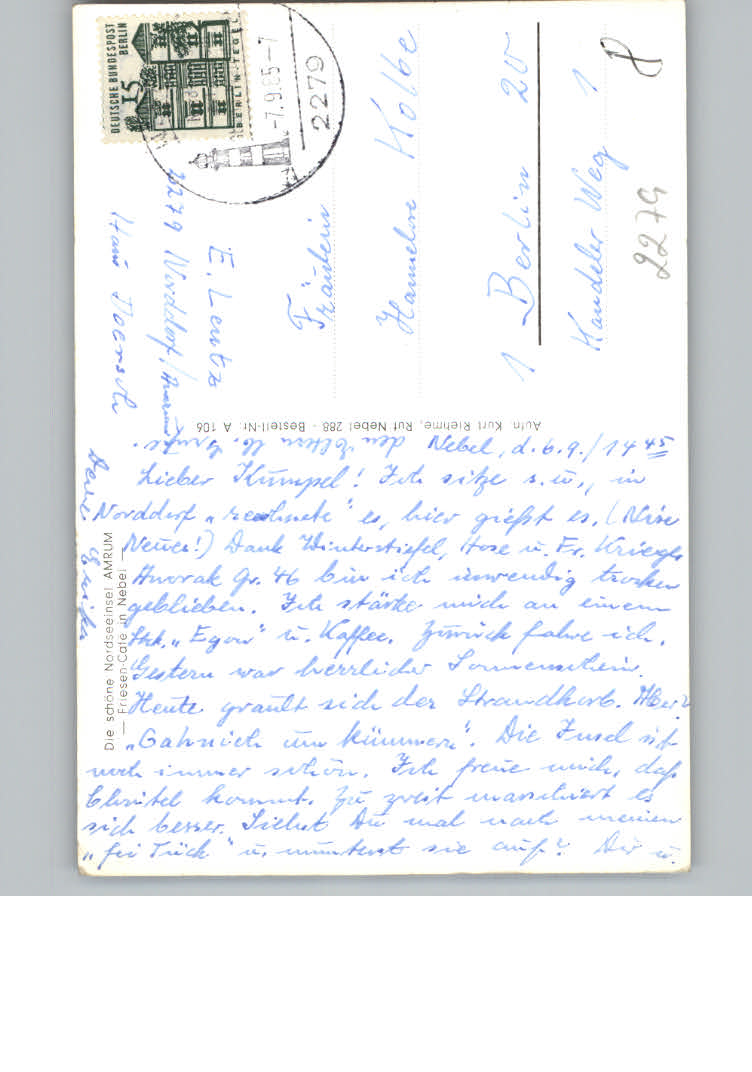 DEUTSCHE BUNDESPOST
BERLIN
15
BERLIN-TEGEL
-7.9.65-7
2279
E. Lentz
2279 Norddorf/Amrum
Haus
Fräulein
Hannelore Kolbe
1 Berlin 20
Kandeler Weg 1
8
2279
Aufn. Kurt Riehme, Ruf Nebel 288 - Bestell-Nr. A 106
Die schöne Nordseeinsel AMRUM
— Friesen-Café in Nebel —
Nebel, d. 6.9./14 45
Lieber Kumpel! Ich sitze s. w., in
Norddorf „rechnete" es, hier gießt es. (Nix
Neues!) Dank Winterstiefel, Hose u. Fr. Kriegers
Anorak Gr. 46 bin ich inwendig trocken
geblieben. Ich stärke mich an einem
Stck. „Egon" u. Kaffee. Zurück fahre ich.
Gestern war herrlicher Sonnenschein.
Heute grault sich der Strandkorb. Aber?
„Gahnich um kümmern". Die Insel ist
noch immer schön. Ich freue mich, daß
Christel kommt. Zu zweit marschiert es
sich besser. Siehst Du mal nach meinen
„ Tück" u. munterst sie auf? Dir u.
den Eltern lb. Grüße.
Deine